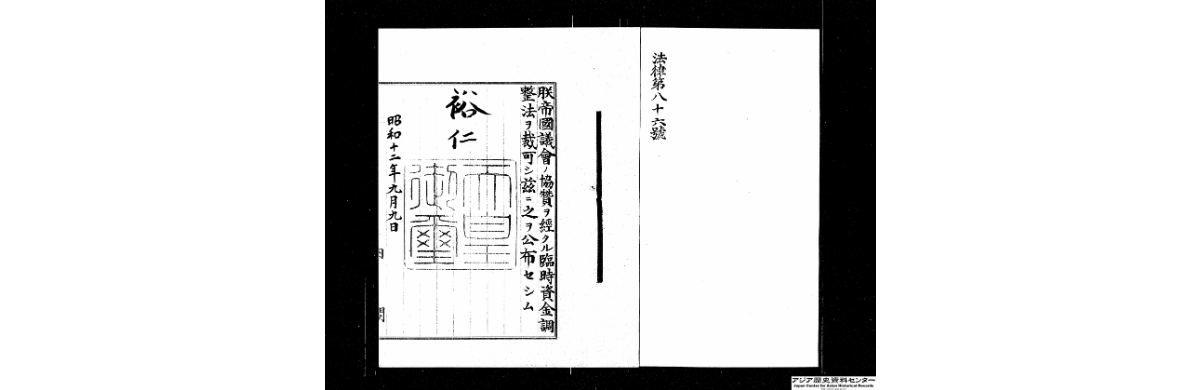 法律第八十六號
朕帝國議會ノ協贊ヲ經タル臨時資金調
整法ヲ裁可シ茲ニ之ヲ公布セシム
裕仁
天皇
御璽
昭和十二年九月九日
内
閣
アジア歴史資料センター
Japan Center for Asian Historical Records